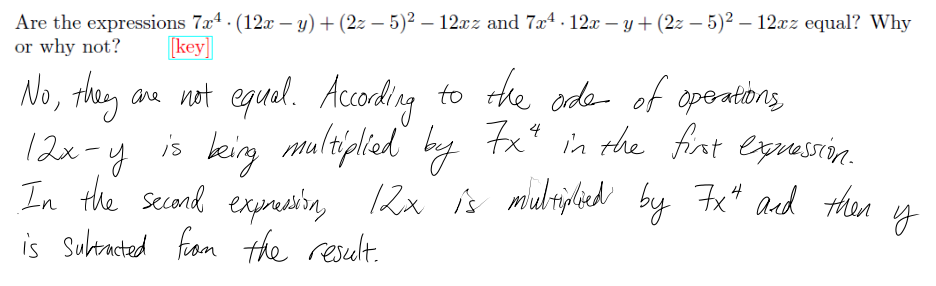 Are the expressions 7x⁴ · (12x − y) + (2z − 5)² − 12xz and 7x⁴ · 12x − y + (2z − 5)² − 12xz equal? Why
or why not? [key]
No, they are not equal. According to the order of operations,
12x-y is being multiplied by 7x⁴ in the first expression.
In the second expression, 12x is multiplied by 7x⁴ and then y
is subtracted from the result.